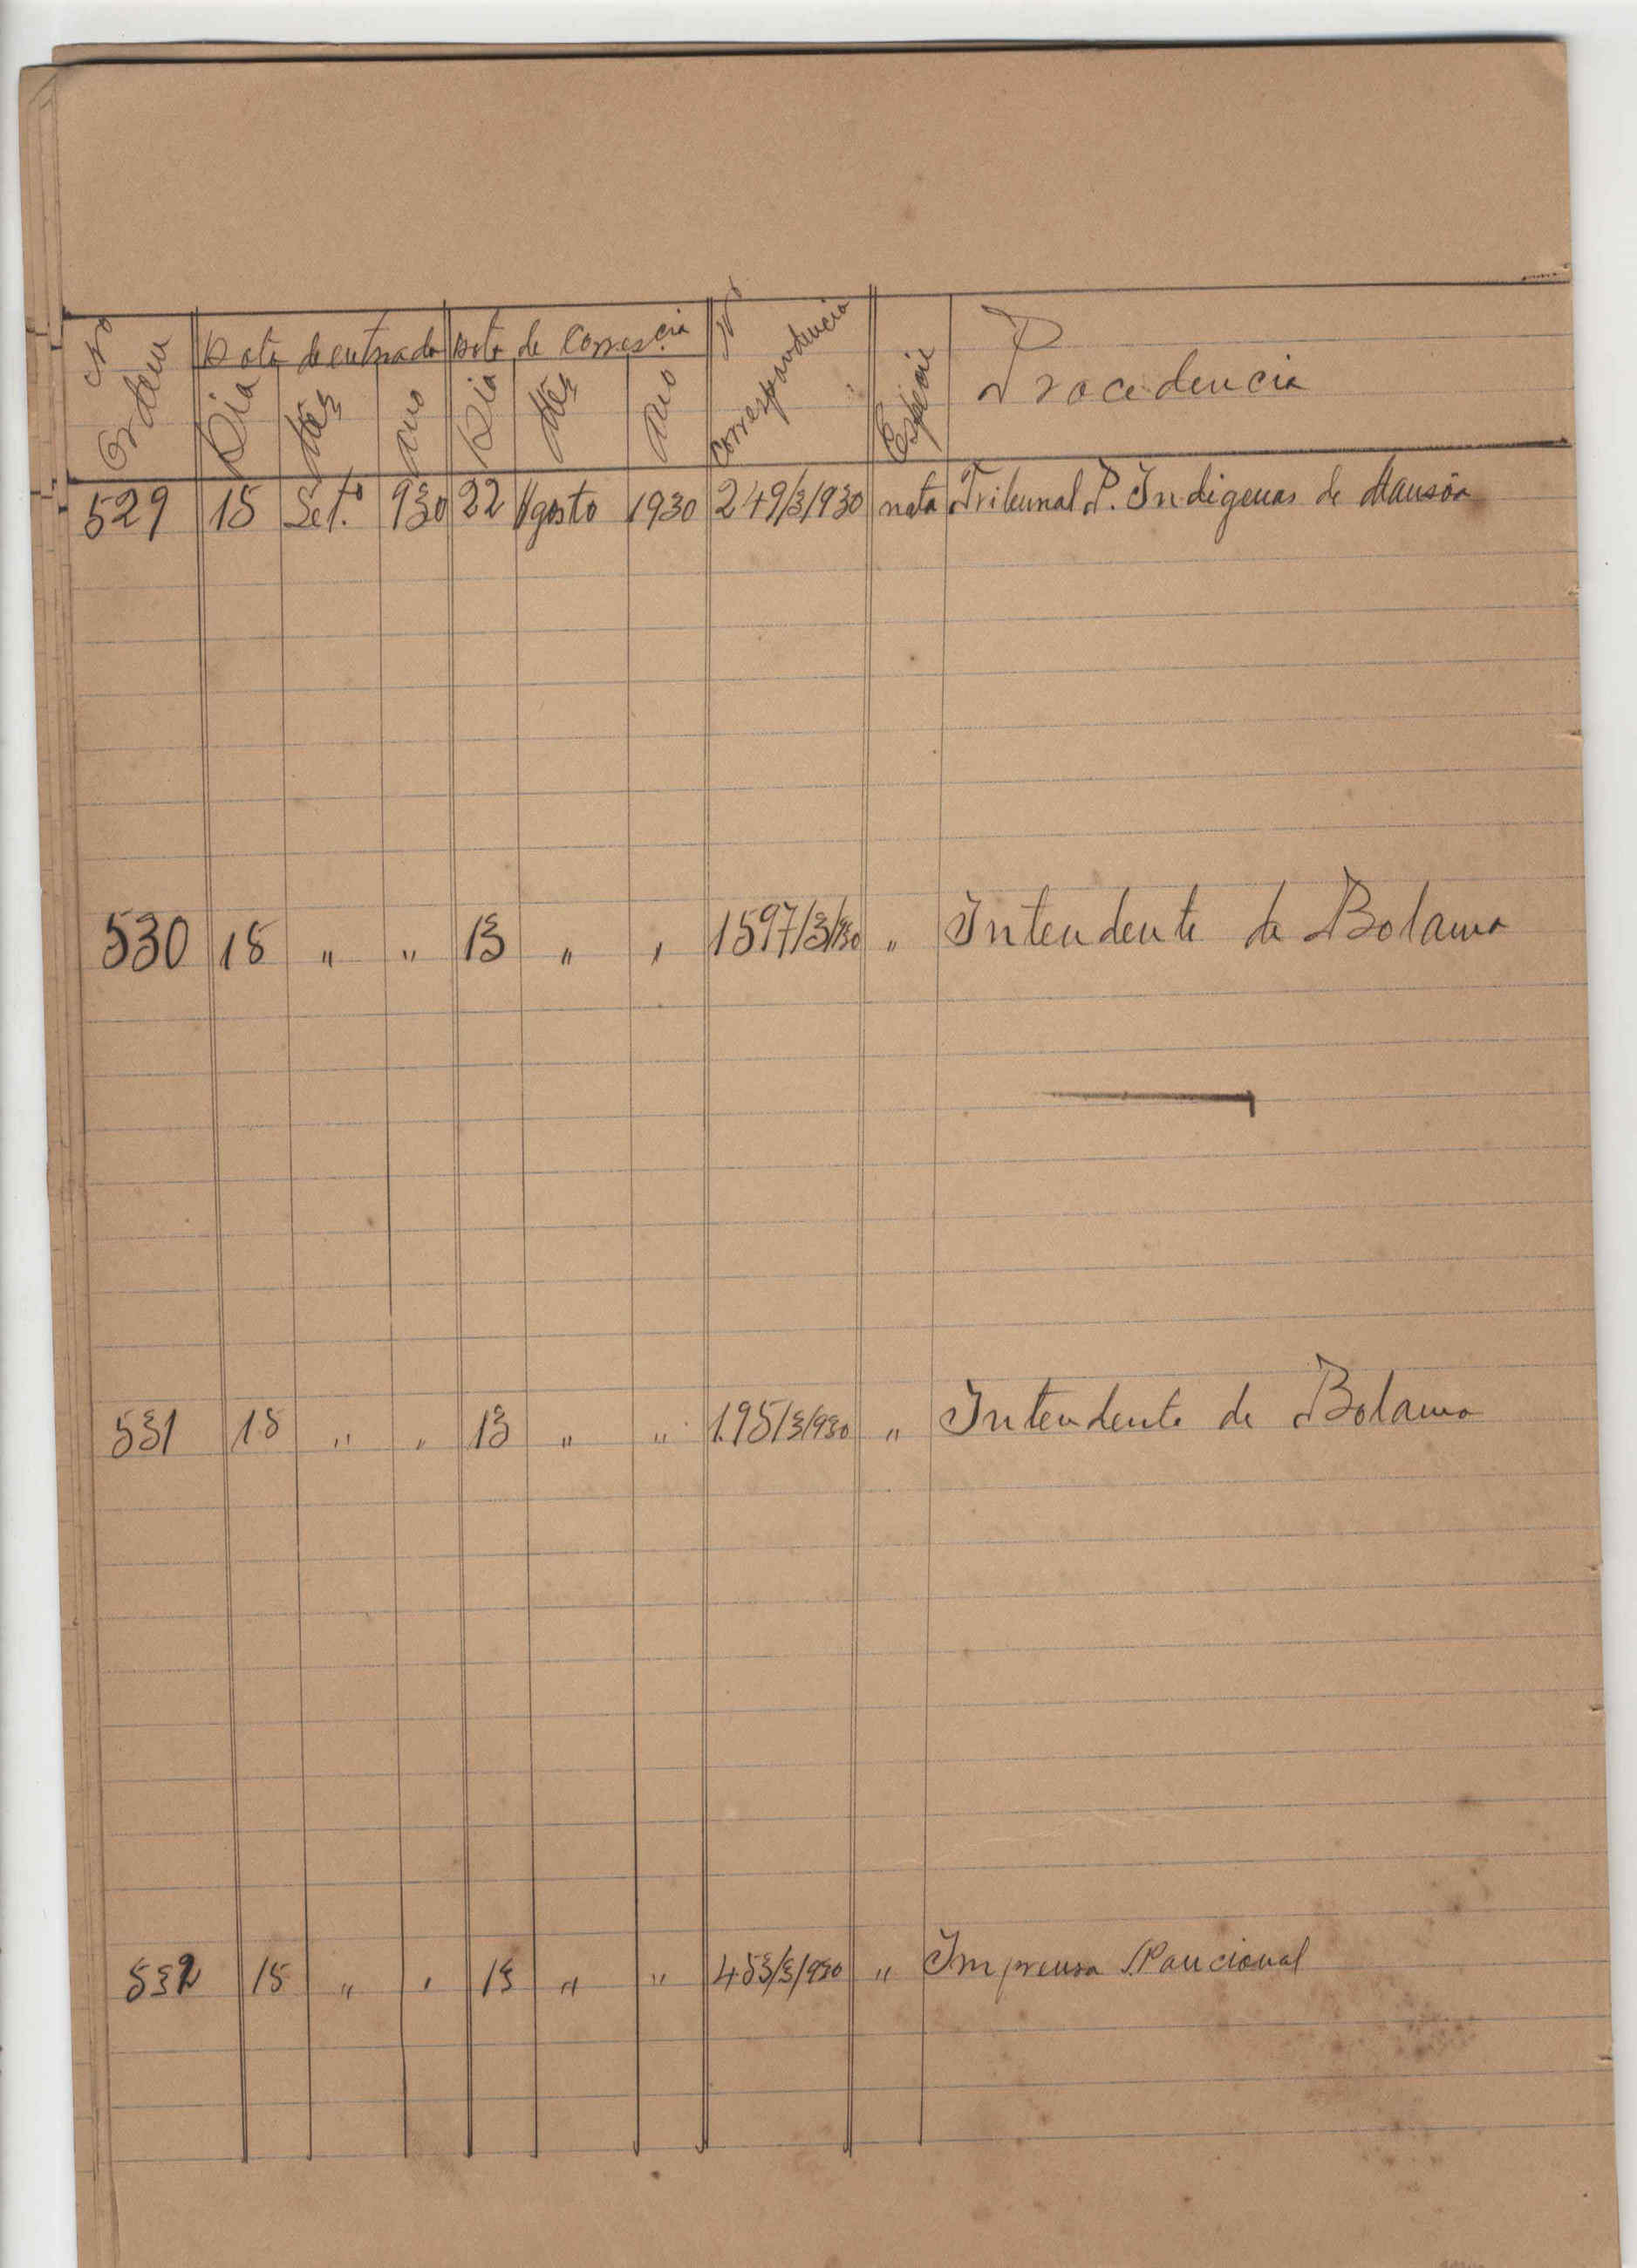 Nº Ordem | Data de entrada | Data de Corres.cia | Nº correspondencia | Especie | Procedencia
Dia | Mês | Ano | Dia | Mês | Ano
529 | 15 | Set.º | 930 | 22 | Agosto | 1930 | 249/3/930 | nota | Tribunal P. Indigenas de Mansôa
530 | 15 | " | " | 13 | " | " | 1597/3/930 | " | Intendente de Bolama
531 | 15 | " | " | 13 | " | " | 195/3/930 | " | Intendente de Bolama
532 | 15 | " | " | 13 | " | " | 453/3/930 | " | Imprensa Nancional